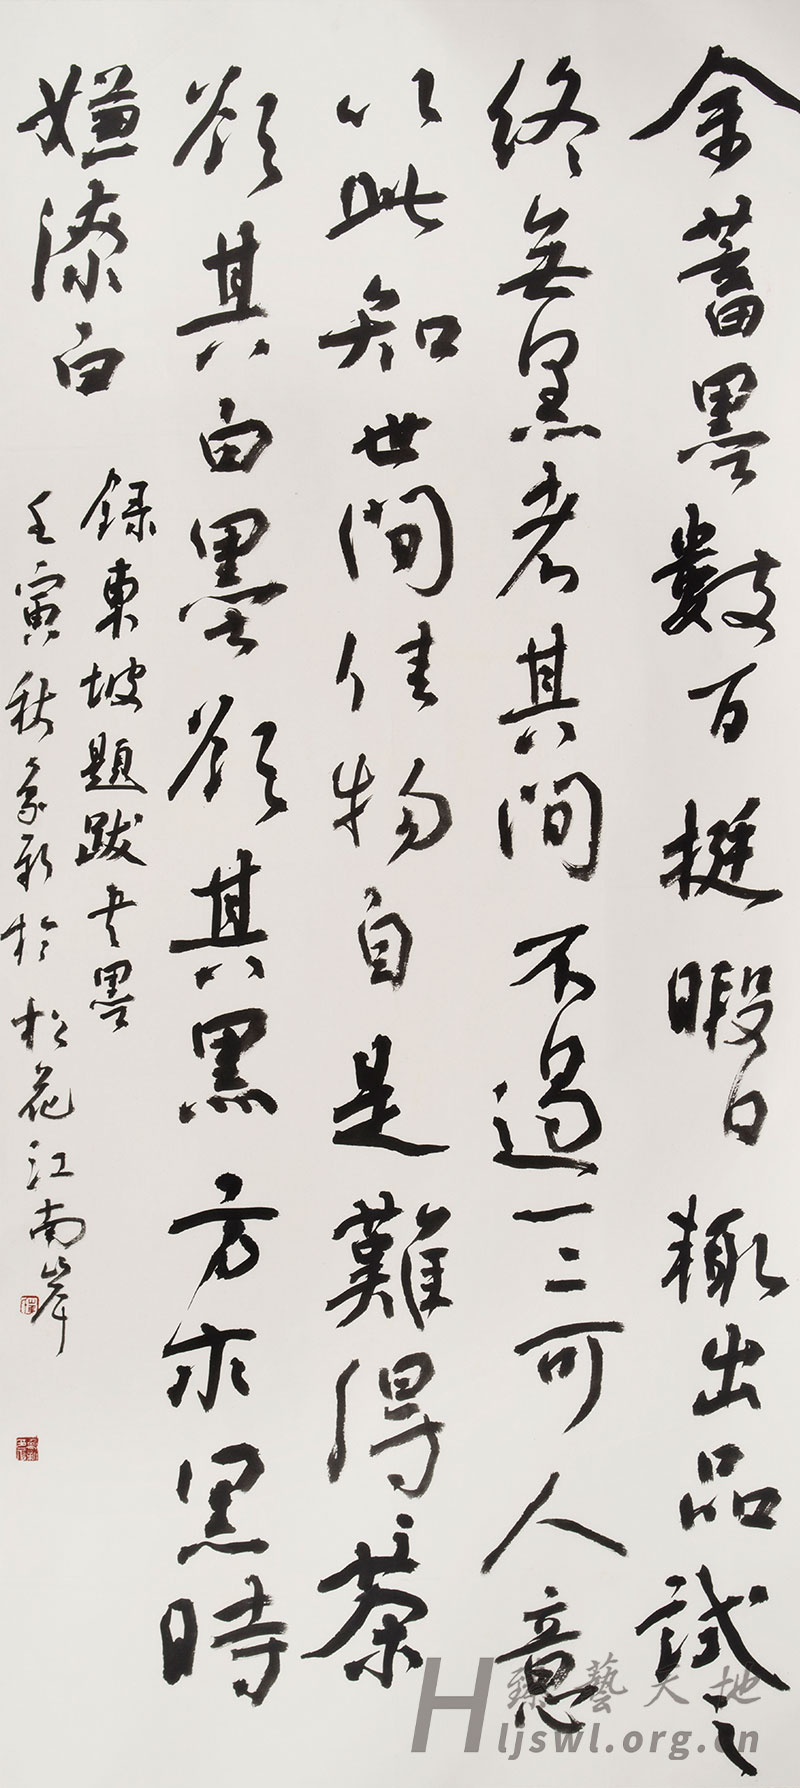 余蓄墨數百挺暇日輒出品試之
終無黑者其間不過一二可人意
以此知世間佳物自是難得茶
欲其白墨欲其黑方求黑時
嫌漆白
錄東坡題跋書墨
壬寅秋於松花江南岸
臻藝天地
Hljswl.org.cn